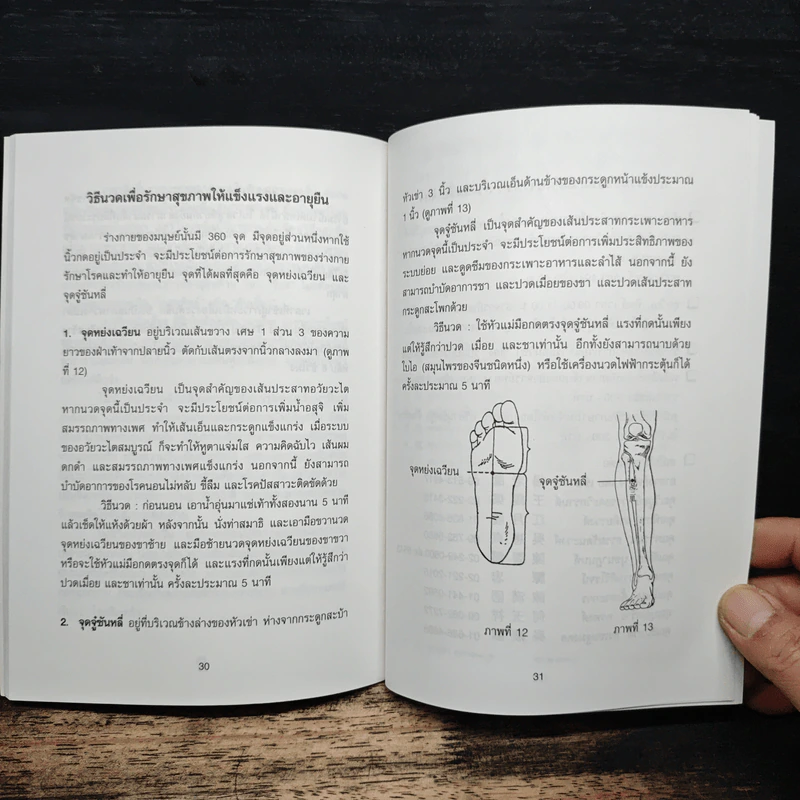 วิธีนวดเพื่อรักษาสุขภาพให้แข็งแรงและอายุยืน
ร่างกายของมนุษย์นั้นมี 360 จุด มีจุดอยู่ส่วนหนึ่งหากใช้
นิ้วกดอยู่เป็นประจำ จะมีประโยชน์ต่อการรักษาสุขภาพของร่างกาย
รักษาโรคและทำให้อายุยืน จุดที่ได้ผลที่สุดคือ จุดหย่งเฉวียน และ
จุดจู๋ซันหลี่
1. จุดหย่งเฉวียน อยู่บริเวณเส้นขวาง เศษ 1 ส่วน 3 ของความ
ยาวของฝ่าเท้าจากปลายนิ้ว ตัดกับเส้นตรงจากนิ้วกลางลงมา (ดูภาพ
ที่ 12)
จุดหย่งเฉวียน เป็นจุดสำคัญของเส้นประสาทอวัยวะไต
หากนวดจุดนี้เป็นประจำ จะมีประโยชน์ต่อการเพิ่มน้ำอสุจิ เพิ่ม
สมรรถภาพทางเพศ ทำให้เส้นเอ็นและกระดูกแข็งแกร่ง เมื่อระบบ
ของอวัยวะไตสมบูรณ์ ก็จะทำให้หูตาแจ่มใส ความคิดฉับไว เส้นผม
ดกดำ และสมรรถภาพทางเพศแข็งแกร่ง นอกจากนี้ ยังสามารถ
บำบัดอาการของโรคนอนไม่หลับ ขี้ลืม และโรคปัสสาวะติดขัดด้วย
วิธีนวด : ก่อนนอน เอาน้ำอุ่นมาแช่เท้าทั้งสองนาน 5 นาที
แล้วเช็ดให้แห้งด้วยผ้า หลังจากนั้น นั่งท่าสมาธิ และเอามือขวานวด
จุดหย่งเฉวียนของขาซ้าย และมือซ้ายนวดจุดหย่งเฉวียนของขาขวา
หรือจะใช้หัวแม่มือกดตรงจุดก็ได้ และแรงที่กดนั้นเพียงแต่ให้รู้สึกว่า
ปวดเมื่อย และชาเท่านั้น ครั้งละประมาณ 5 นาที
2. จุดจู๋ซันหลี่ อยู่ที่บริเวณข้างล่างของหัวเข่า ห่างจากกระดูกสะบ้า
30
หัวเข่า 3 นิ้ว และบริเวณเอ็นด้านข้างของกระดูกหน้าแข้งประมาณ
1 นิ้ว (ดูภาพที่ 13)
จุดจู๋ซันหลี่ เป็นจุดสำคัญของเส้นประสาทกระเพาะอาหาร
หากนวดจุดนี้เป็นประจำ จะมีประโยชน์ต่อการเพิ่มประสิทธิภาพของ
ระบบย่อย และดูดซึมของกระเพาะอาหารและลำไส้ นอกจากนี้ ยัง
สามารถบำบัดอาการชา และปวดเมื่อยของขา และปวดเส้นประสาท
กระดูกสะโพกด้วย
วิธีนวด : ใช้หัวแม่มือกดตรงจุดจู๋ซันหลี่ แรงที่กดนั้นเพียง
แต่ให้รู้สึกว่าปวด เมื่อย และชาเท่านั้น อีกทั้งยังสามารถนาบด้วย
ใบไอ (สมุนไพรของจีนชนิดหนึ่ง) หรือใช้เครื่องนวดไฟฟ้ากระตุ้นก็ได้
ครั้งละประมาณ 5 นาที
จุดหย่งเฉวียน
จุดจู๋ซันหลี่
ภาพที่ 12
ภาพที่ 13
31